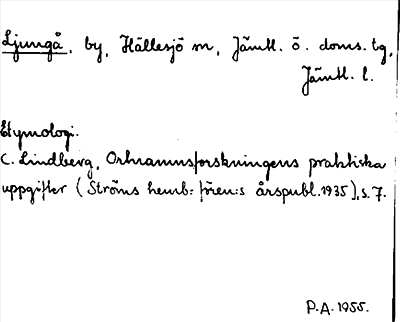 Ljungå, by, Hällesjö sn, Jämtl. ö. doms. tg,
Jämtl. l.
Etymologi.
C. Lindberg, Ortnamnsforskningens praktiska
uppgifter (Ströms hemb: fören:s årspubl. 1935), s. 7.
P.A. 1955.